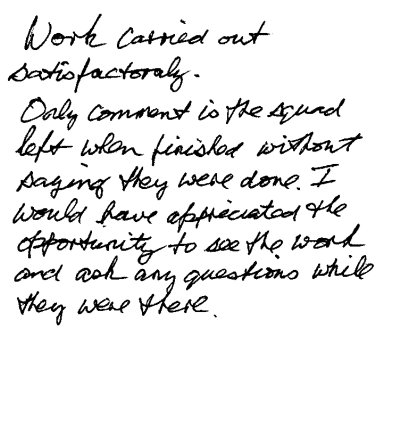 Work carried out
satisfactoraly.
Only comment is the squad
left when finished without
saying they were done. I
would have appreciated the
opportunity to see the work
and ask any questions while
they were there.